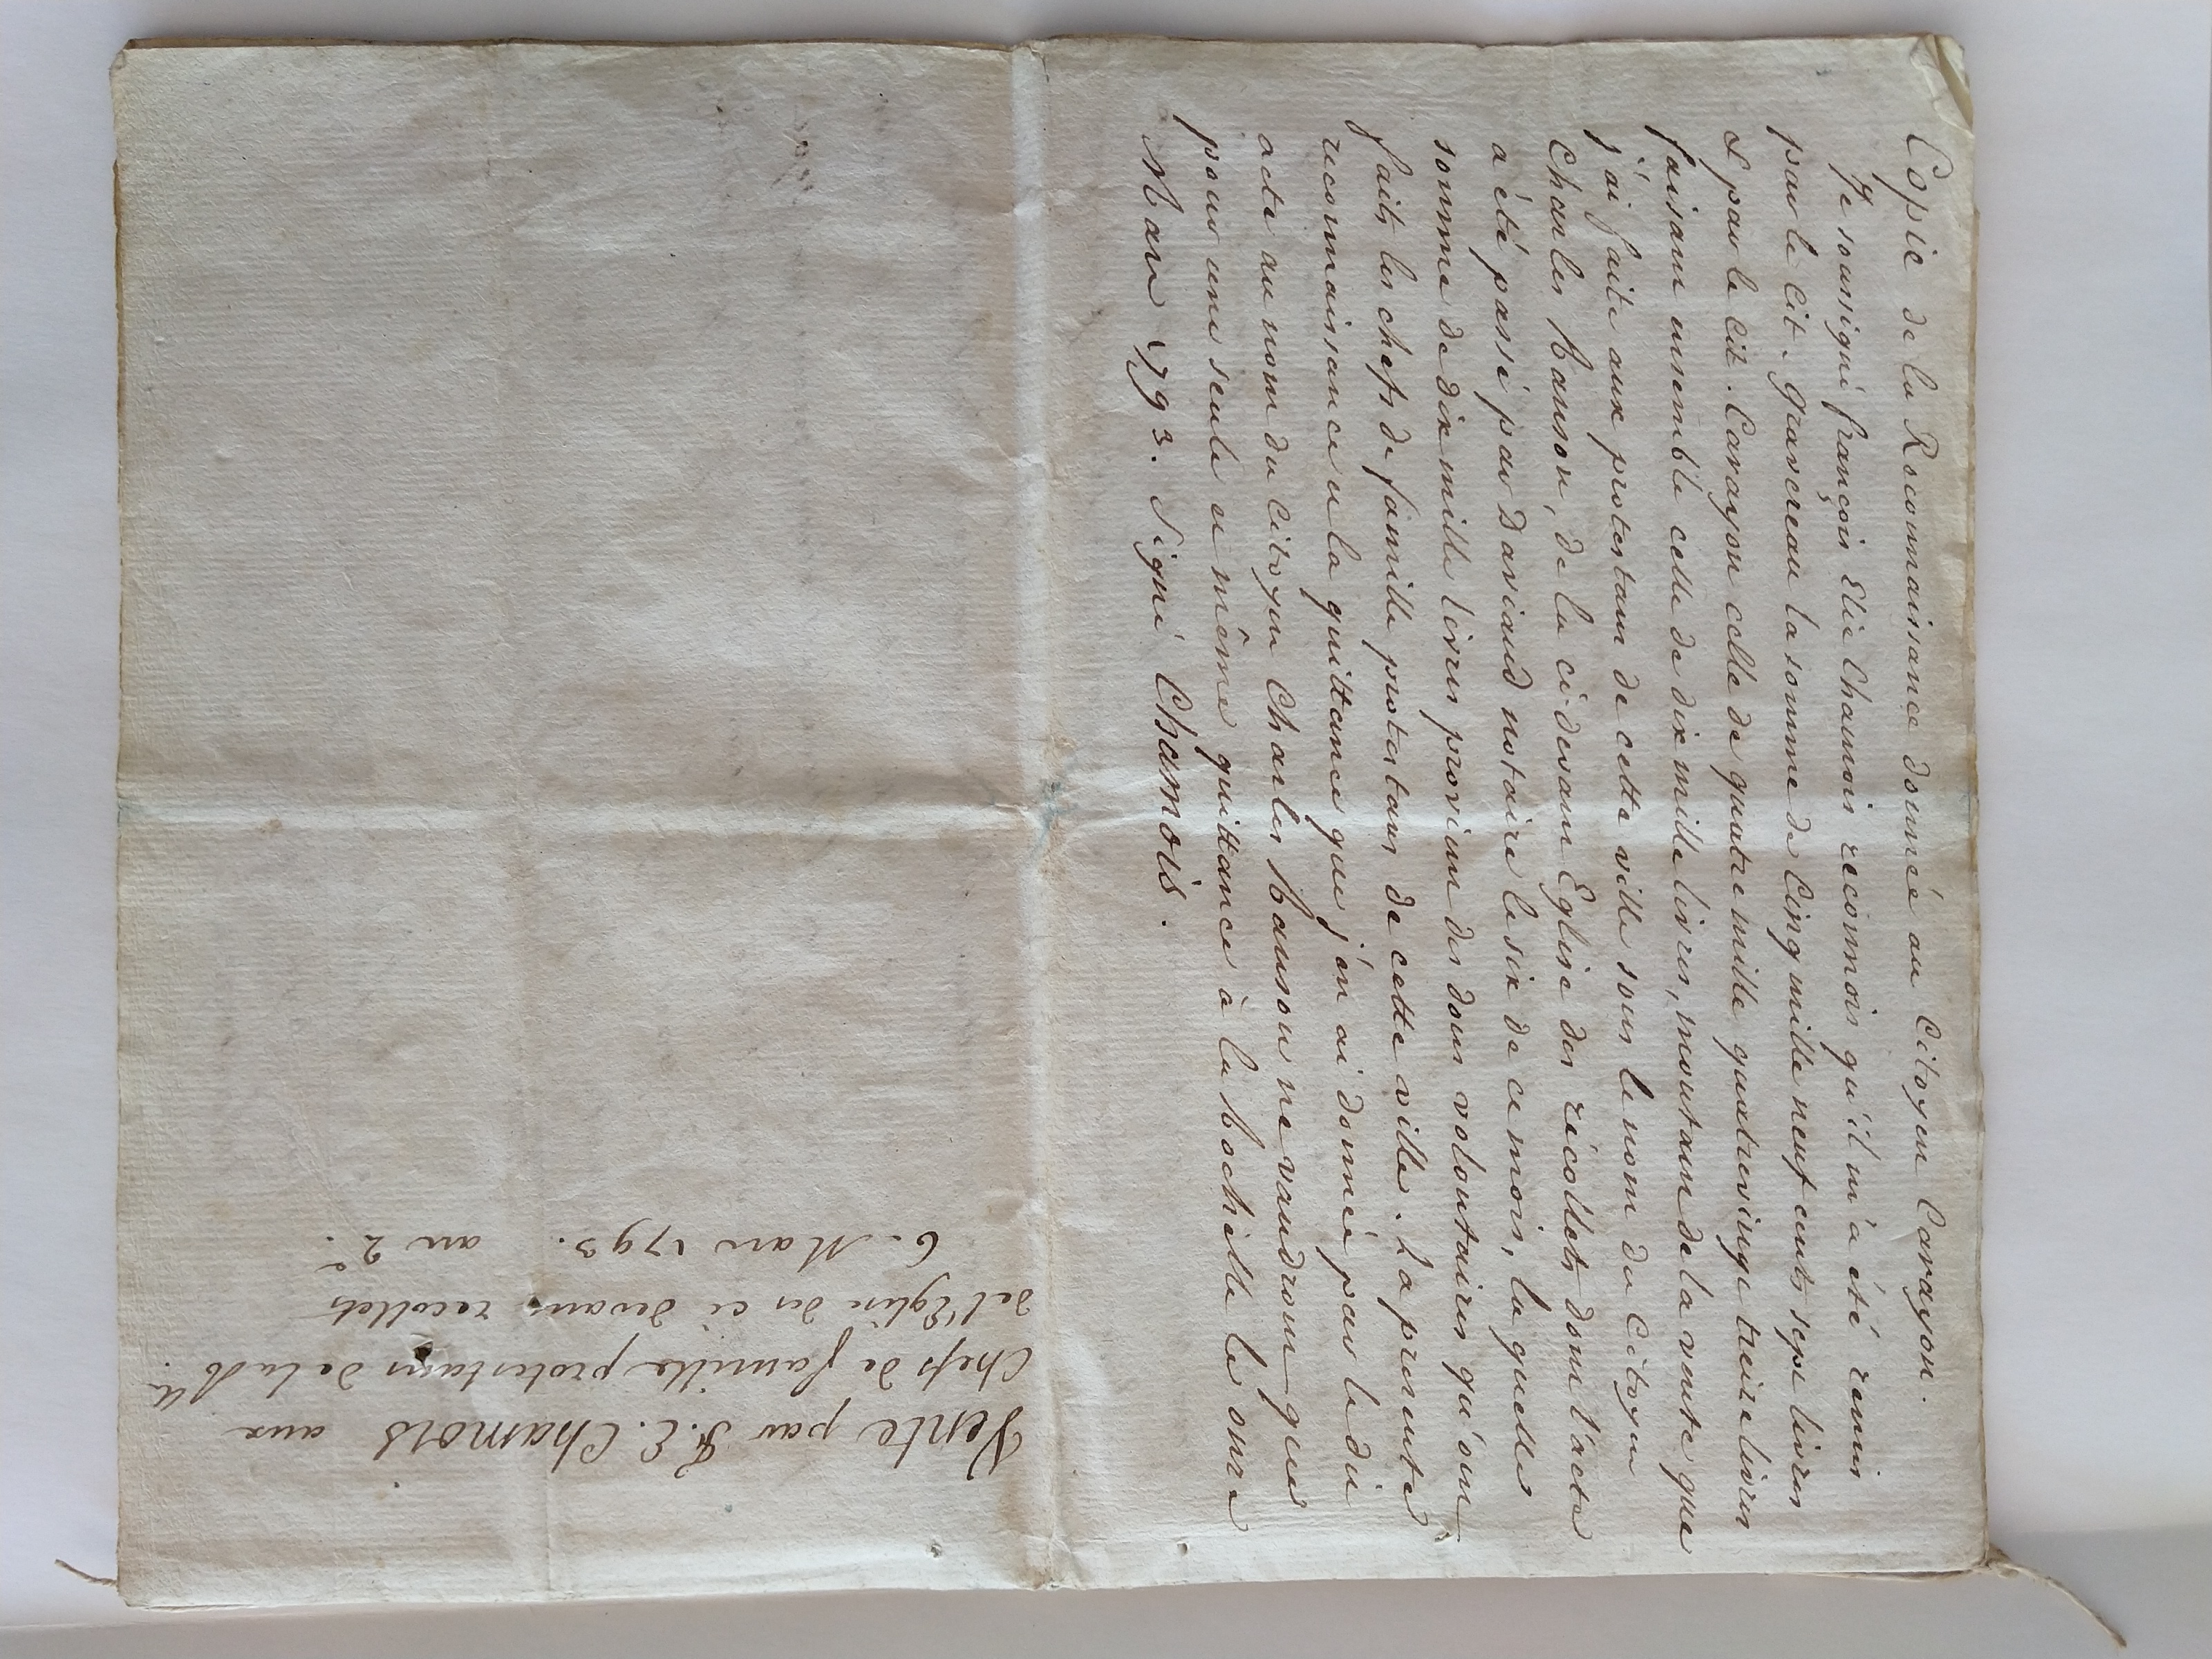 Copie de la Reconnaissance donnée au Citoyen Carayon.
Je soussigné françois Elie Chamois reconnois qu'il m'a été remis
par le Cit. Gravereau la somme de Cinq mille neuf cents sept livres
& par le Cit. Carayon celle de quatre mille quatrevingt treize livres
faisant ensemble celle de dix mille livres, montant de la vente que
j'ai faite aux protestans de cette ville sous le nom du Citoyen
Charles Ranson, de la ci-devant Eglise des récollets dont l'acte
a été passé par Daviaud notaire le six de ce mois, laquelle
somme de dix mille livres provient des dons volontaires qu'ont
faits les chefs de famille protestans de cette ville. La presente
reconnaissance et la quittance que j'en ai donnée par le dit
acte au nom du Citoyen Charles Ranson ne vaudront que
pour une seule et même quittance à la Rochelle le onze
Mars 1793. Signé Chamois.
Vente par F. E. Chamois aux
Chefs de famille protestans de la Rlle.
de l'Eglise des ci devant recollets
6. Mars 1793. an 2e.